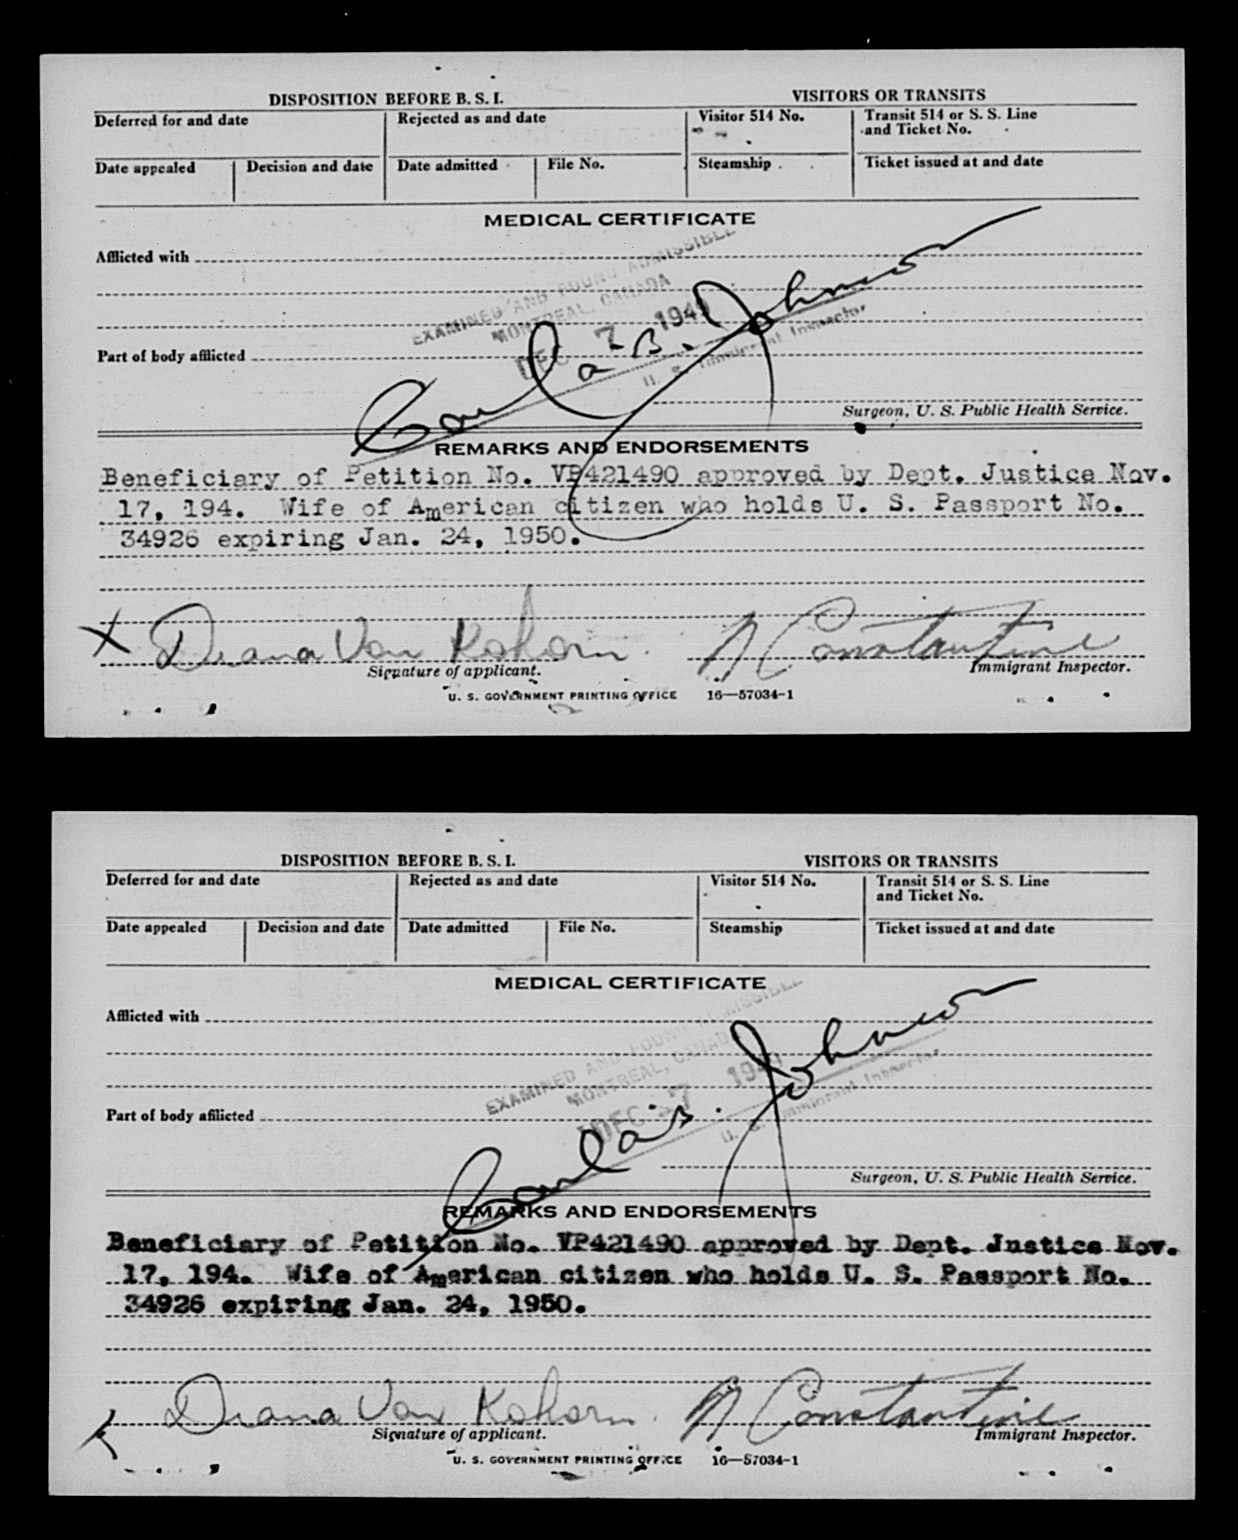 DISPOSITION BEFORE B. S. I. VISITORS OR TRANSITS
Deferred for and date Rejected as and date Visitor 514 No. Transit 514 or S. S. Line and Ticket No.
Date appealed Decision and date Date admitted File No. Steamship Ticket issued at and date
MEDICAL CERTIFICATE
Afflicted with
EXAMINED AND FOUND ADMISSIBLE
MONTREAL, CANADA
DEC 7 1949
B. Johnson
U. S. Immigrant Inspector
Part of body afflicted
Surgeon, U. S. Public Health Service.
REMARKS AND ENDORSEMENTS
Beneficiary of Petition No. VP421490 approved by Dept. Justice Nov.
17, 194. Wife of American citizen who holds U. S. Passport No.
34926 expiring Jan. 24, 1950.
X Diana Von Kohorn N Constantine
Signature of applicant. Immigrant Inspector.
U. S. GOVERNMENT PRINTING OFFICE 16—57034-1
DISPOSITION BEFORE B. S. I. VISITORS OR TRANSITS
Deferred for and date Rejected as and date Visitor 514 No. Transit 514 or S. S. Line and Ticket No.
Date appealed Decision and date Date admitted File No. Steamship Ticket issued at and date
MEDICAL CERTIFICATE
Afflicted with
EXAMINED AND FOUND ADMISSIBLE
MONTREAL, CANADA
DEC 7 1949
B. Johnson
U. S. Immigrant Inspector
Part of body afflicted
Surgeon, U. S. Public Health Service.
REMARKS AND ENDORSEMENTS
Beneficiary of Petition No. VP421490 approved by Dept. Justice Nov.
17, 194. Wife of American citizen who holds U. S. Passport No.
34926 expiring Jan. 24, 1950.
Diana Von Kohorn N Constantine
Signature of applicant. Immigrant Inspector.
U. S. GOVERNMENT PRINTING OFFICE 16—57034-1